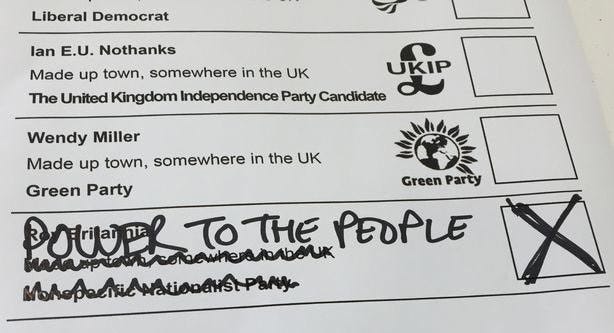 Liberal Democrat
Ian E.U. Nothanks
Made up town, somewhere in the UK
UKIP
The United Kingdom Independence Party Candidate
Wendy Miller
Made up town, somewhere in the UK
Green Party
Green Party
POWER TO THE PEOPLE
Britannia
Made up town, somewhere in the UK
Nationalist Party